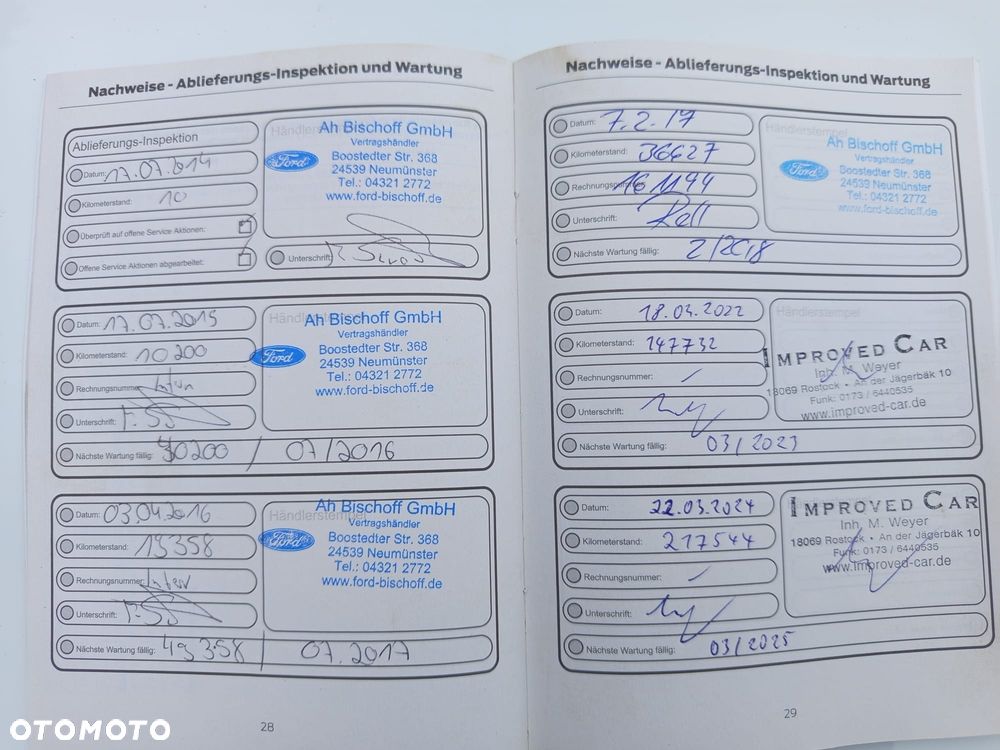 Nachweise - Ablieferungs-Inspektion und Wartung
Ablieferungs-Inspektion
Datum: 17.07.2014
Kilometerstand: 10
Überprüft auf offene Service Aktionen:
Offene Service Aktionen abgearbeitet:
Händlerstempel
Ah Bischoff GmbH
Vertragshändler
Ford
Boostedter Str. 368
24539 Neumünster
Tel.: 04321 2772
www.ford-bischoff.de
Unterschrift:
Datum: 17.07.2015
Kilometerstand: 10200
Rechnungsnummer:
Unterschrift:
Nächste Wartung fällig: 30200 / 07/2016
Händlerstempel
Ah Bischoff GmbH
Vertragshändler
Ford
Boostedter Str. 368
24539 Neumünster
Tel.: 04321 2772
www.ford-bischoff.de
Datum: 03.04.2016
Kilometerstand: 19358
Rechnungsnummer:
Unterschrift:
Nächste Wartung fällig: 49358 / 07.2017
Händlerstempel
Ah Bischoff GmbH
Vertragshändler
Ford
Boostedter Str. 368
24539 Neumünster
Tel.: 04321 2772
www.ford-bischoff.de
28
Nachweise - Ablieferungs-Inspektion und Wartung
Datum: 7.2.17
Kilometerstand: 36627
Rechnungsnummer: 161194
Unterschrift:
Nächste Wartung fällig: 2/2018
Händlerstempel
Ah Bischoff GmbH
Vertragshändler
Ford
Boostedter Str. 368
24539 Neumünster
Tel.: 04321 2772
www.ford-bischoff.de
Datum: 18.03.2022
Kilometerstand: 147732
Rechnungsnummer: /
Unterschrift:
Nächste Wartung fällig: 03/2023
Händlerstempel
IMPROVED CAR
Inh. M. Weyer
18069 Rostock • An der Jägerbäk 10
Funk: 0173 / 6440535
www.improved-car.de
Datum: 22.03.2024
Kilometerstand: 217544
Rechnungsnummer: /
Unterschrift:
Nächste Wartung fällig: 03/2025
Händlerstempel
IMPROVED CAR
Inh. M. Weyer
18069 Rostock • An der Jägerbäk 10
Funk: 0173 / 6440535
www.improved-car.de
29
OTOMOTO